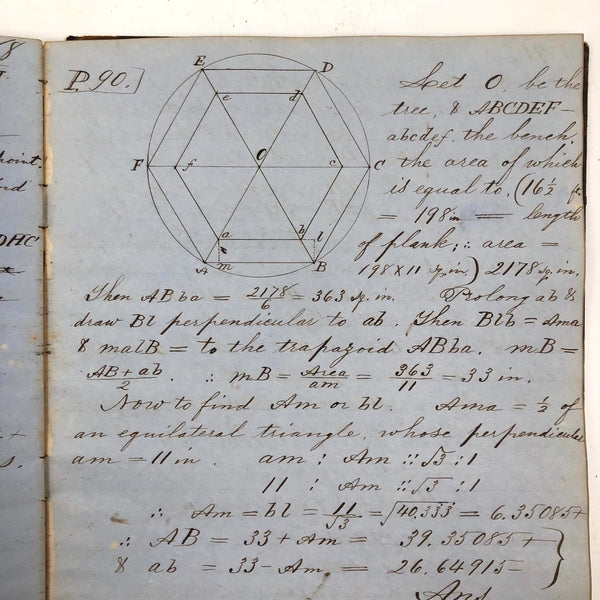 P. 90.
E D
e d
F f O c C
a b l
A m B
Let O. be the
tree, & ABCDEF—
abcdef. the bench
the area of which
is equal to, (16½ ft.
= 198 in = length
of plank; ∴ area =
198 X 11 sq. in.) 2178 sq. in.
Then ABba = 2178/6 = 363 sq. in. Prolong ab &
draw Bl perpendicular to ab. Then Blb = Ama
& malB = to the trapazoid ABba. mB =
AB + ab/2. ∴ mB = Area/am = 363/11 = 33 in.
Now to find Am or bl. Ama = ½ of
an equilateral triangle, whose perpendicular
am = 11 in. am : Am :: √3 : 1
11 : Am :: √3 : 1
∴ Am = bl = 11/√3 = √40.333 = 6.35085+
∴ AB = 33 + Am = 39.35085+
& ab = 33 - Am = 26.64915-
Ans